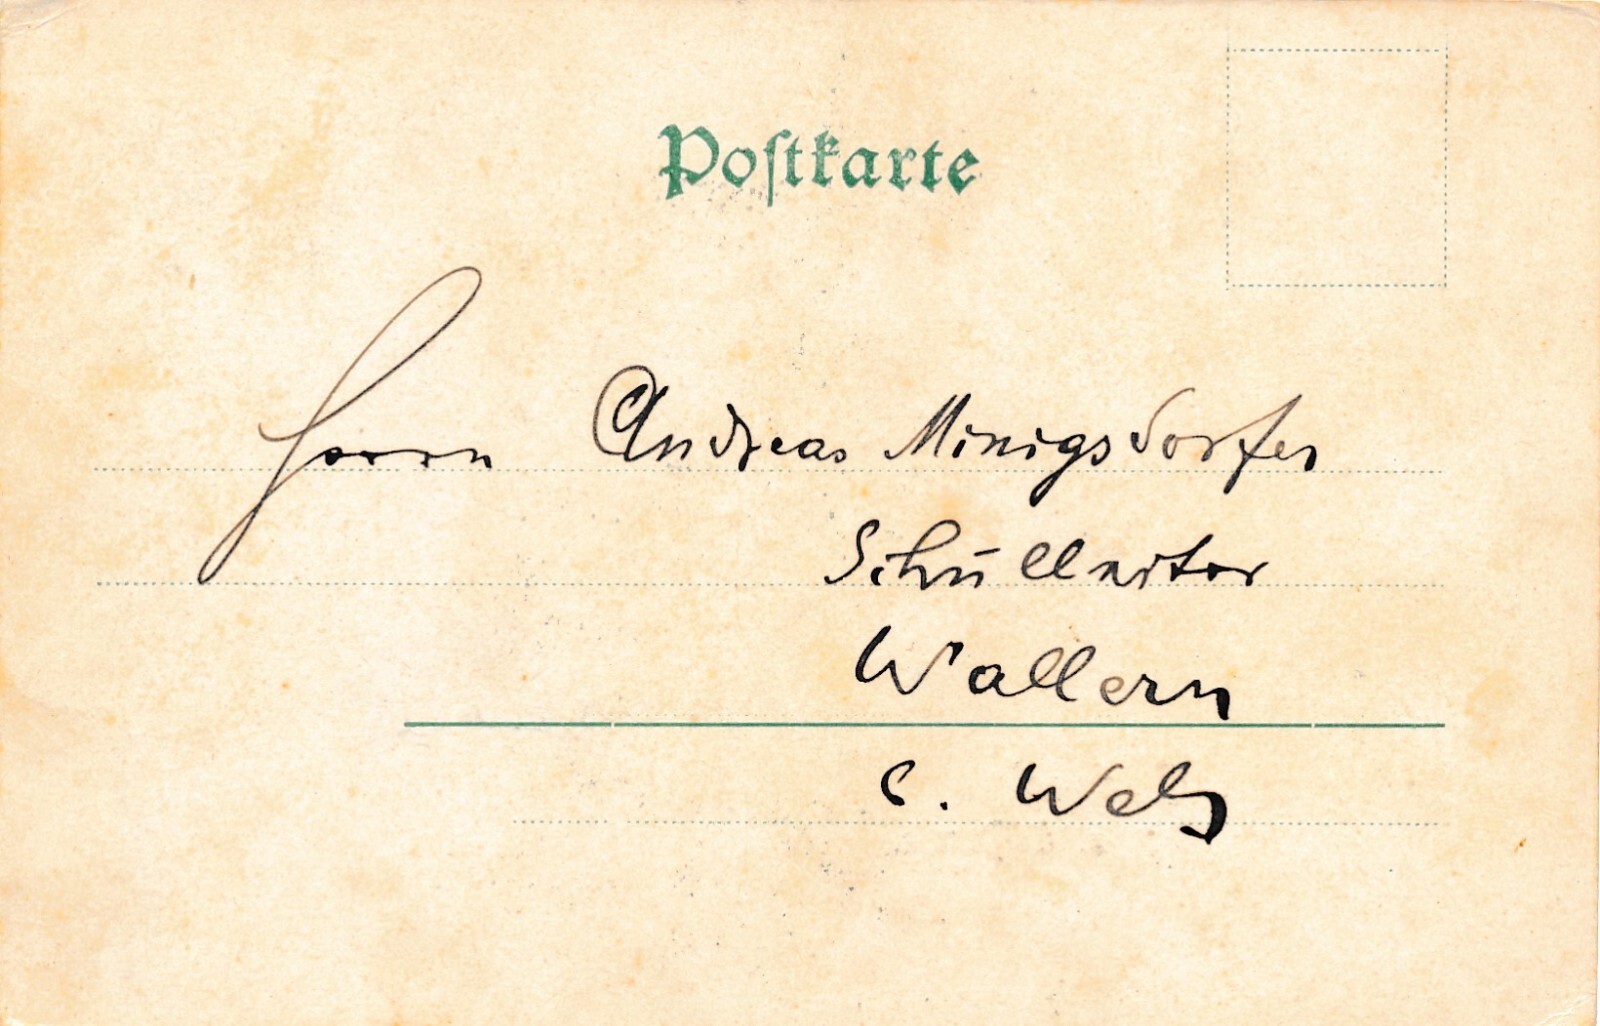 Postkarte
Herrn Andreas Minigsdorfer
Schulleiter
Wallern
b. Wels